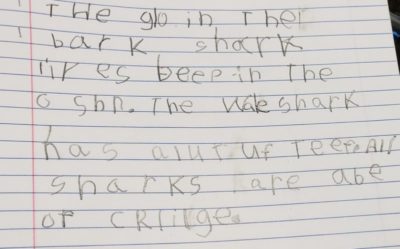 THe glo in THe
bark shark
lir es beep in The
o shn. The wale shark
has alut uf TeeT. All
sharks are abe
of cRtilge.